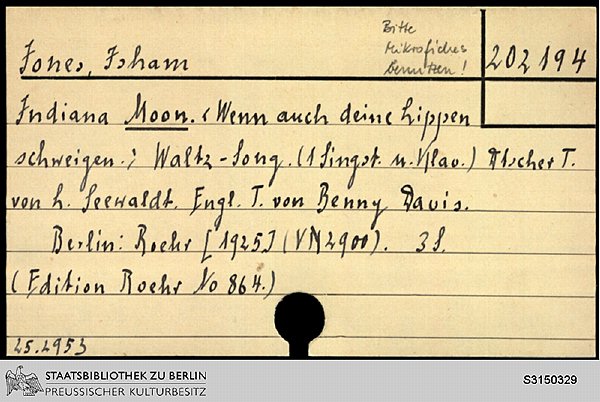 Bitte
Mikrofiches
benutzen!
202194
Jones, Isham
Indiana Moon. <Wenn auch deine Lippen
schweigen.> Waltz-Song. (1 Singst. u. Klav.) Dtscher T.
von H. Seewaldt. Engl. T. von Benny Davis.
Berlin: Roehr [1925] (VN 2900). 3 S.
(Edition Roehr No 864.)
25.2953
STAATSBIBLIOTHEK ZU BERLIN
PREUSSISCHER KULTURBESITZ
S3150329